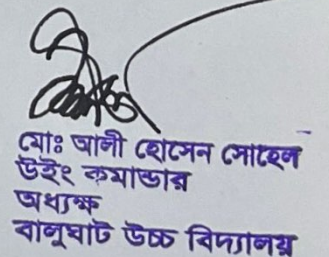 মোঃ আলী হোসেন সোহেল
উইং কমান্ডার
অধ্যক্ষ
বালুঘাট উচ্চ বিদ্যালয়